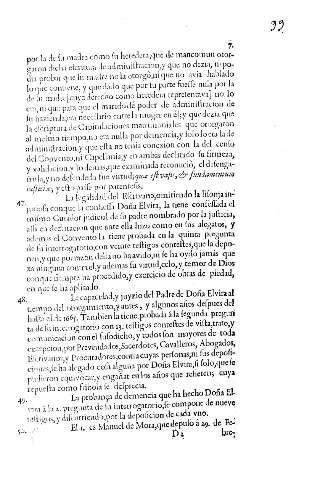 99
7.
por la de su madre como su heredera, que de mancomun otor-
garon dicha escritura de administracion, y que no dezia, ni po-
dia probar que su madre no la otorgó, ni que no avia hablado
lo que contiene, y quedado que por su parte fuesse nula por la
de su madre (cuyo derecho como heredera representava) no lo
era, ni que para que el marido dé poder de administracion de
su hazienda, es necessario entre la muger en él; y que dezia que
la escriptura de Capitulaciones matrimoniales que otorgaron
al mesmo tiempo, no era nula por demencia, y solo lo era la de
administracion, y que ella no tenia conexion con la del censo
del Convento, ni Capellania, y en ambas declarado su firmeza,
y validacion, y lo demas, que examinada reconoció, el
y esto passe por parentesis.
47. La legalidad del Escrivano,
passion conque la contesta Doña Elvira, la tiene confessada el
mismo Curador judicial de su padre nombrado por la justicia,
allà en declaracion que ante ella hizo como en sus alegatos, y
ademas el Convento la tiene probada en la quinta pregunta
de su interrogatorio, con veinte testigos contestes, que la depo-
nen, y que por razon della no ha avido, ni se ha oydo jamàs que
aya ninguna contra el, y ademas su virtud, zelo, y temor de Dios
conque siempre ha procedido, y exercicio de obras de piedad,
en que se ha aplicado.
48. La capacidad, y juyzio del Padre de Doña Elvira al
tiempo del otorgamiento, y antes, y algunos años despues del
hasta el de 1665. Tambien la tiene probada à la segunda pregun-
ta de su interrogatorio con 23. testigos contestes de vista, trato, y
comunicacion con el susodicho, y todos son mayores de toda
excepcion, por Prevendados, Sacerdotes, Cavalleros, Abogados,
Escrivanos, y Procuradores, contra cuyas personas, ni sus deposi-
ciones, se ha alegado cosa alguna por Doña Elvira, si solo, que se
pudieron equivocar, y engañar en los años que refieren; cuya
repuesta como frivola se desprecia.
49. La probança de demencia que ha hecho Doña El-
vira à la 2. pregunta de su interrogatorio, se compone de nueve
testigos, y discurriendo por la deposicion de cada uno.
50. El 1. es Manuel de Mora, que depuso à 29. de Fe-
D 2 bre-